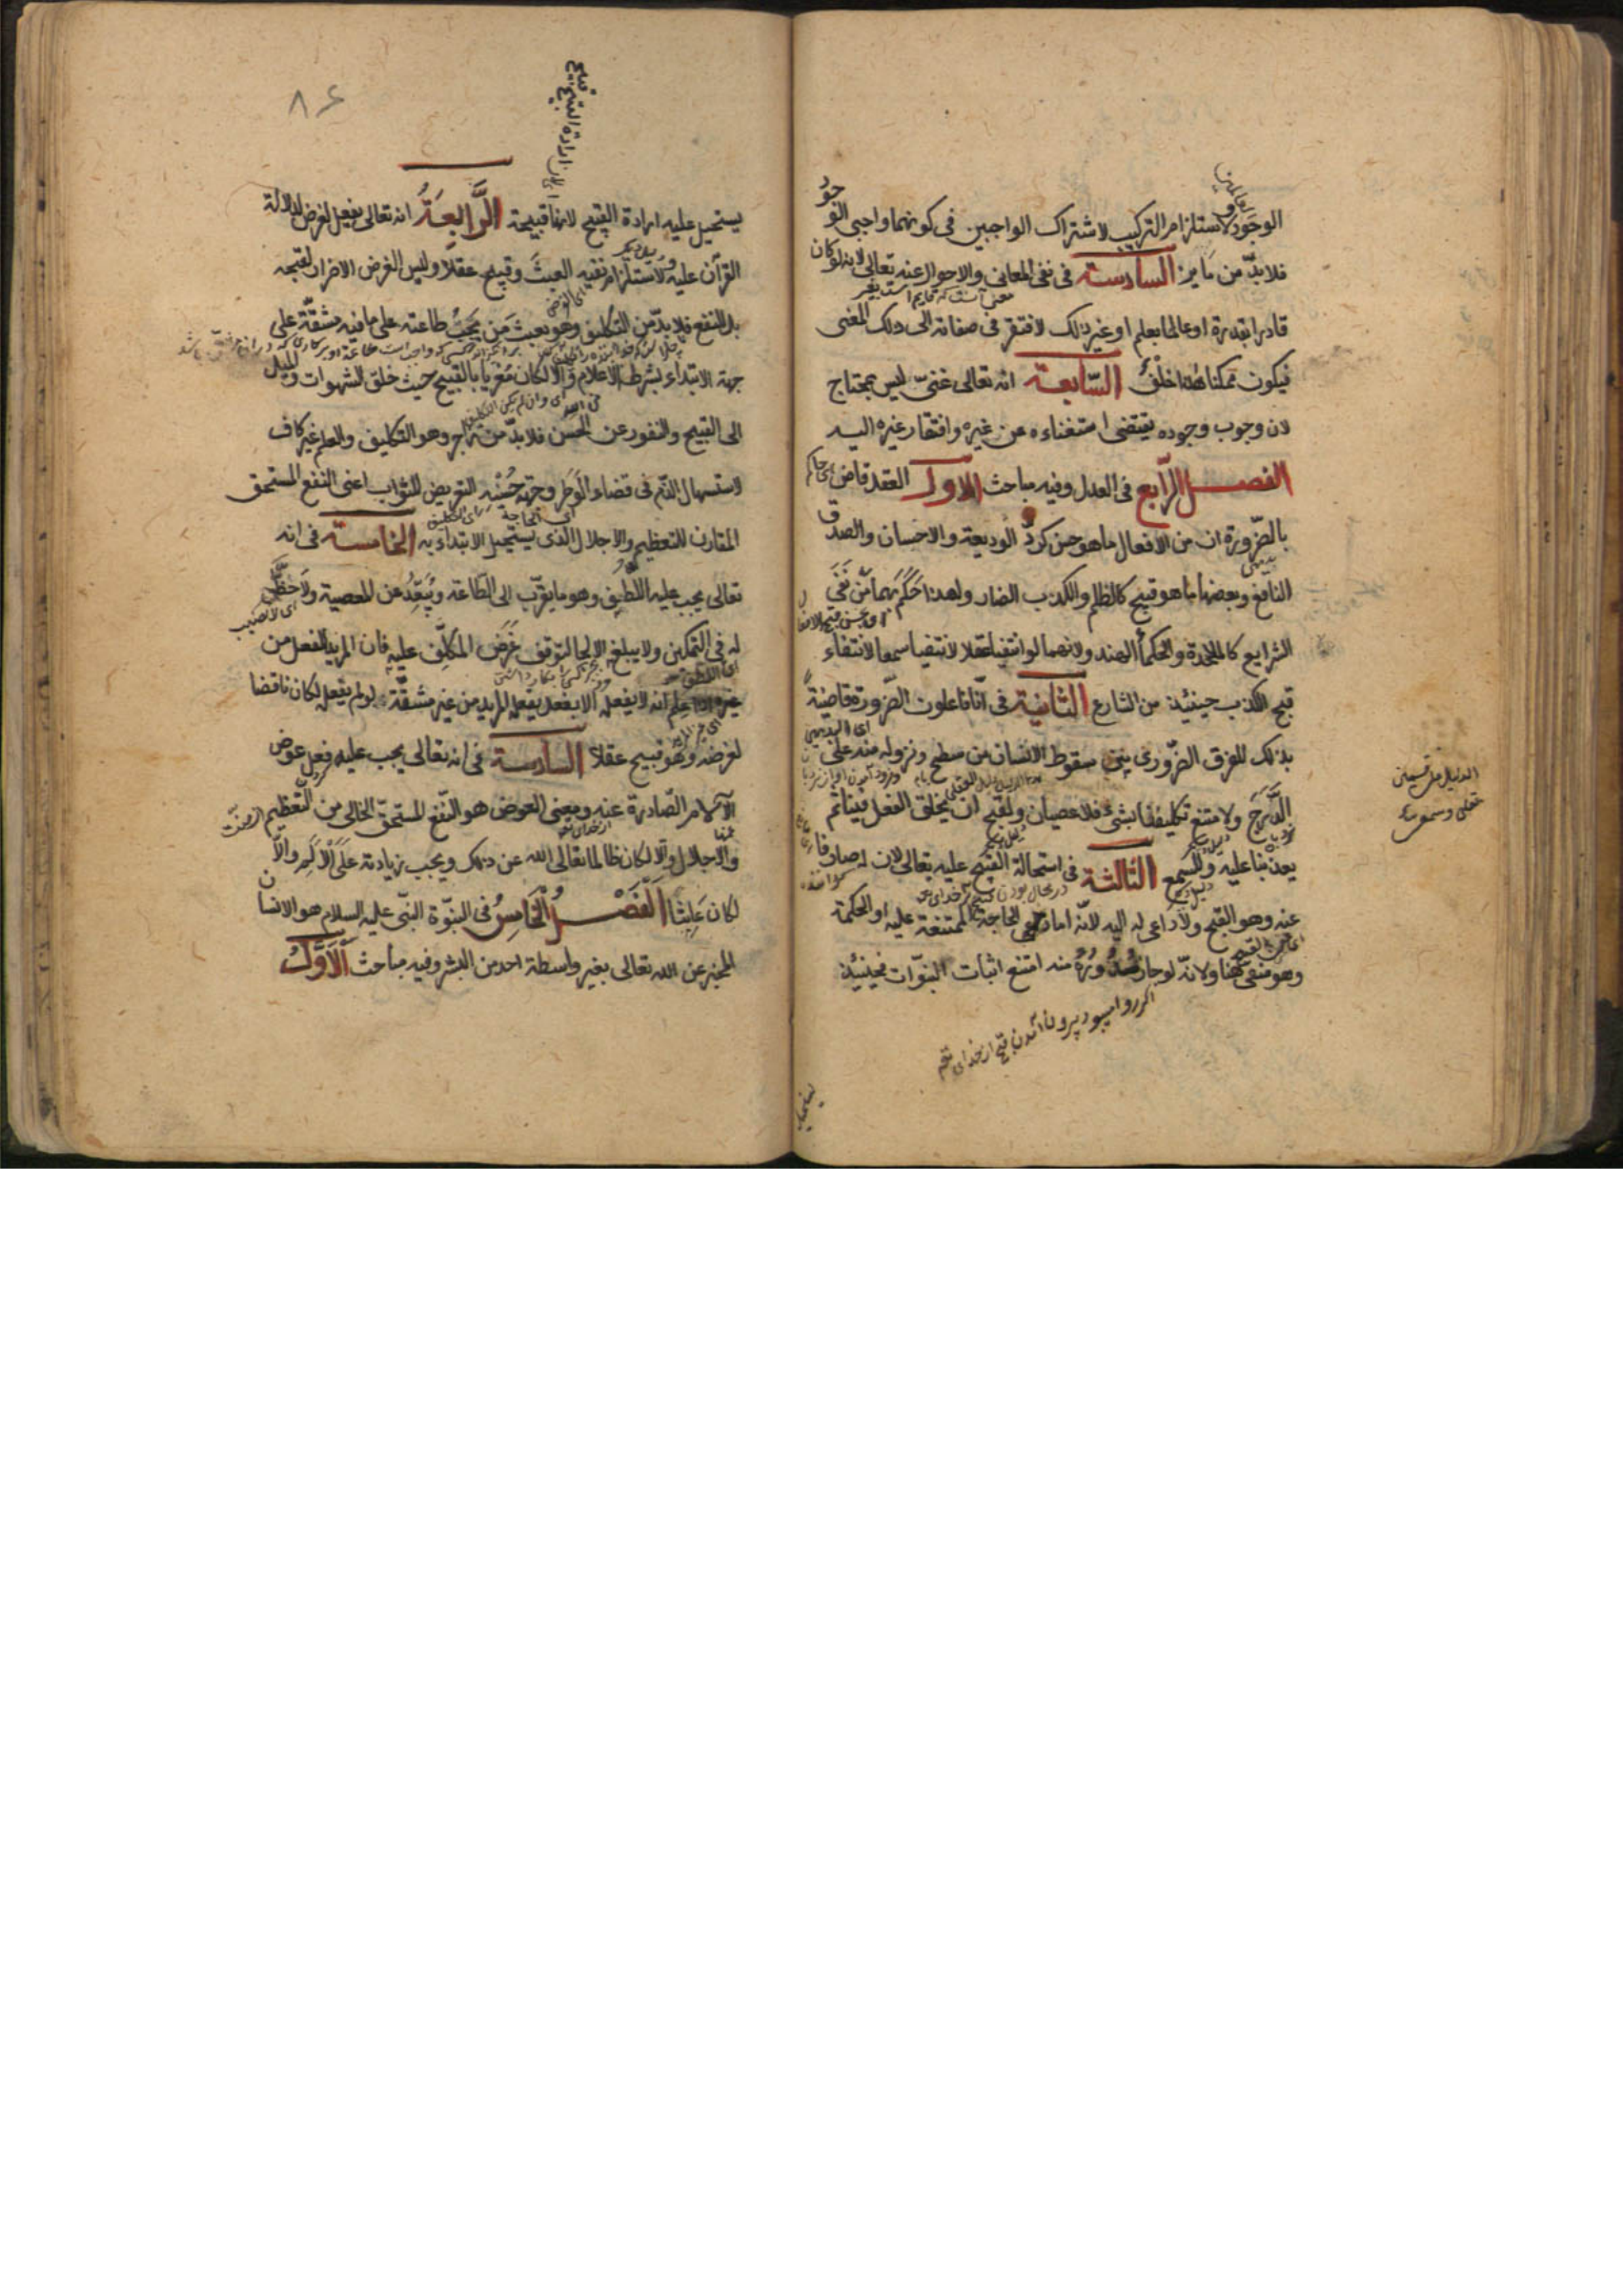 الوجود ولاستلزامه التركيب لاشتراك الواجبين في كونهما واجبي الوجود
فلا بدّ من مايز السادسة في نفي المعاني والاحوال عنه تعالى لانه لو كان
قادرا بقدرة او عالما بعلم او غير ذلك لافتقر في صفاته الى ذلك المعنى
فيكون ممكنا هذا خلف السّابعة انه تعالى غنيّ ليس بمحتاج
لان وجوب وجوده يقتضى استغناءه عن غيره وافتقار غيره اليه
الفصل الرّابع في العدل وفيه مباحث الاول العقل قاض
بالضّرورة ان من الافعال ما هو حسن كردّ الوديعة والاحسان والصدق
النافع وبعضها ما هو قبيح كالظلم والكذب الضار ولهذا حكم بهما من نفى
الشرايع كالملاحدة والحكماء الهند ولانهما لو انتفيا عقلا لانتفيا سمعا لانتفاء
قبح الكذب حينئذ من الشارع الثانية في انّا فاعلون الضّرورة قاضية
بذلك للفرق الضّروري بين سقوط الانسان من سطح ونزوله منه على
الدَّرَج ولامتنع تكليفنا بشئ فلا عصيان ولقبح ان يخلق الفعل فينا ثم
يعذبنا عليه وللسمع الثالثة في استحالة القبيح عليه تعالى لان له صارفا
عنه وهو القبح ولا داعى له اليه لانّه اما داعى الحاجة الممتنعة عليه او الحكمة
وهو منفى هنا ولانّه لو جاز صدوره منه امتنع اثبات النبوّات فحينئذ
اكر روا ميبود بيرون آمدن قبح از خداى تعم
الدليل على قسمين
عقلى وسمعى
٨۶
يستحيل عليه ارادة القبيح لانها قبيحة الرَّابعَةُ انه تعالى يفعل لغرض لدلالة
القرآن عليه ولاستلزام نفيه العبث وقبيح عقلا وليس الغرض الاضرار لقبحه
بل النفع فلا بدّ من التكليف وهو بعث من يجب طاعته على ما فيه مشقّة على
جهة الابتداء بشرط الاعلام والا لكان مغريا بالقبيح حيث خلق الشهوات والميل
الى القبيح والنفور عن الحسن فلا بدّ من زاجر وهو التكليف والعلم غير كاف
لاستسهال الذّم في قضاء الوطر وجهة حُسْنه التعريض للثواب اعنى النفع المستحق
المقارن للتعظيم والاجلال الذى يستحيل الابتداء به الخامسة في انه
تعالى يجب عليه اللطف وهو ما يقرّب الى الطّاعة ويُبَعِّدُ عن المعصية ولا حظّ
له في التمكين ولا يبلغ الالجا لتوقف غَرَض المكلّف عليه فان المريد لفعل من
غيره اذا علم انه لا يفعله الا بفعل يفعله المريد من غير مشقّة لو لم يفعل لكان ناقضا
لغرضه وهو قبيح عقلا السادسة في انه تعالى يجب عليه فعل عوض
الآلام الصّادرة عنه ومعنى العوض هو النّفع المستحقّ الخالى من التّعظيم
والاجلال والا لكان ظالما تعالى الله عن ذلك ويجب زيادته على الالم والّا
لكان عابثا الفَصْلُ الخَامِسُ في النبوّة النبّى عليه السلام هو الانسان
المخبر عن الله تعالى بغير واسطة احد من البشر وفيه مباحث الاَوَّلُ